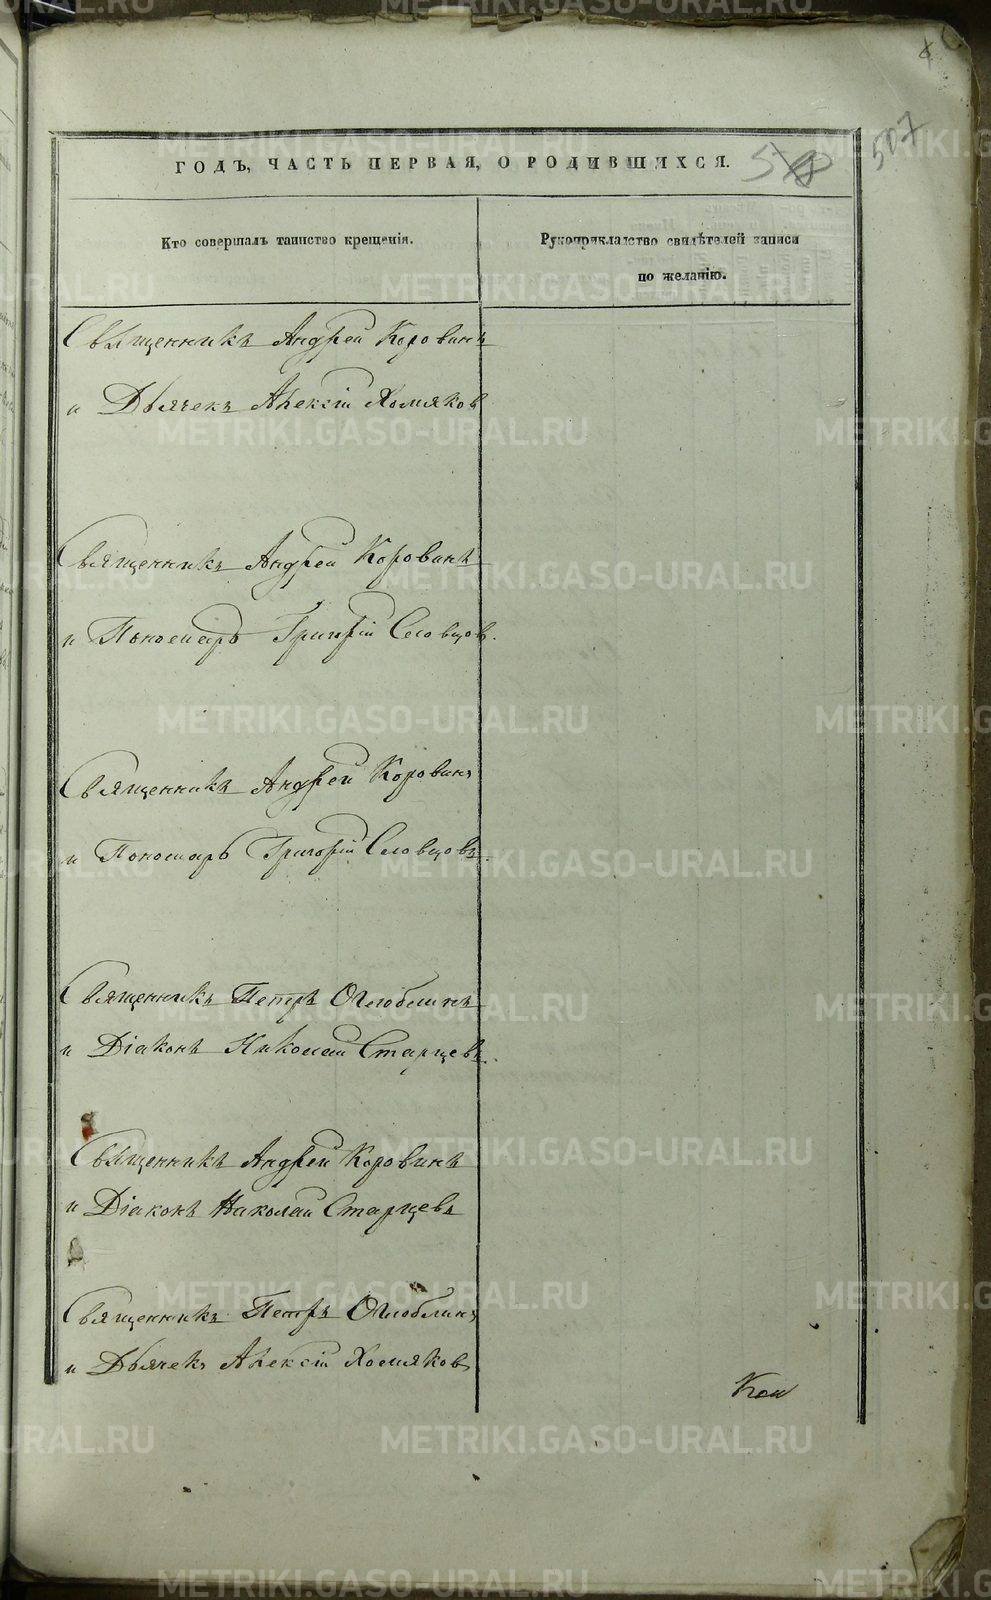 507
ГОДЪ, ЧАСТЬ ПЕРВАЯ, О РОДИВШИХСЯ.
Кто совершалъ таинство крещенія.
Рукоприкладство свидѣтелей записи
по желанію.
Священникъ Андрей Коровинъ
и Дьячекъ Алексій Хомяков
Священникъ Андрей Коровинъ
и Пономарь Григорій Словцов.
Священникъ Андрей Коровинъ
и Пономарь Григорій Словцовъ.
Священникъ Петръ Оглоблинъ
и Діаконъ Николай Старцевъ.
Священникъ Андрей Коровинъ
и Діаконъ Николай Старцевъ
Священникъ Петръ Оглоблинъ
и Дьячекъ Алексій Хомяковъ
METRIKI.GASO-URAL.RU